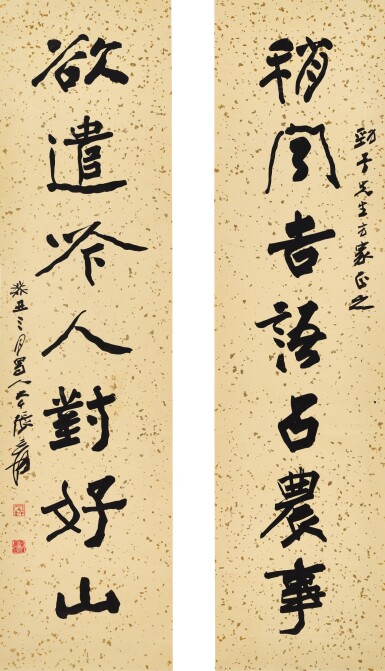 勁 先生方家正之
稍聞吉語占農事
欲遣吟人對好山
癸丑三月蜀人大千張爰